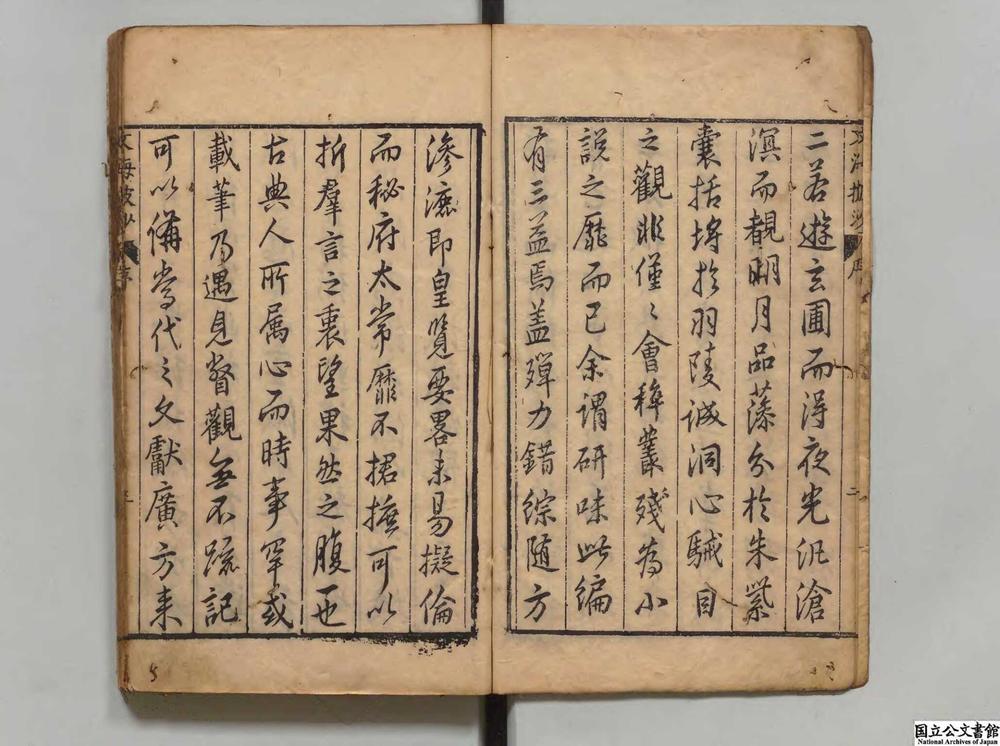 二若遊玄圃而得夜光汎滄
溟而覩明月品藻分於朱紫
囊括埒於羽陵誠洞心駴目
之觀非僅〻會稡叢殘為小
說之靡而已余謂研味此編
有三益焉蓋殫力錯綜随方
滲漉即皇覽要畧未易擬倫
而秘府太常靡不捃摭可以
折羣言之衷望果然之腹一也
古典人所属心而時事罕或
載筆乃遇見瞥觀無不疏記
可以備當代之文獻廣方来
文海披沙 序 二
文海披沙 序 三
国立公文書館
National Archives of Japan